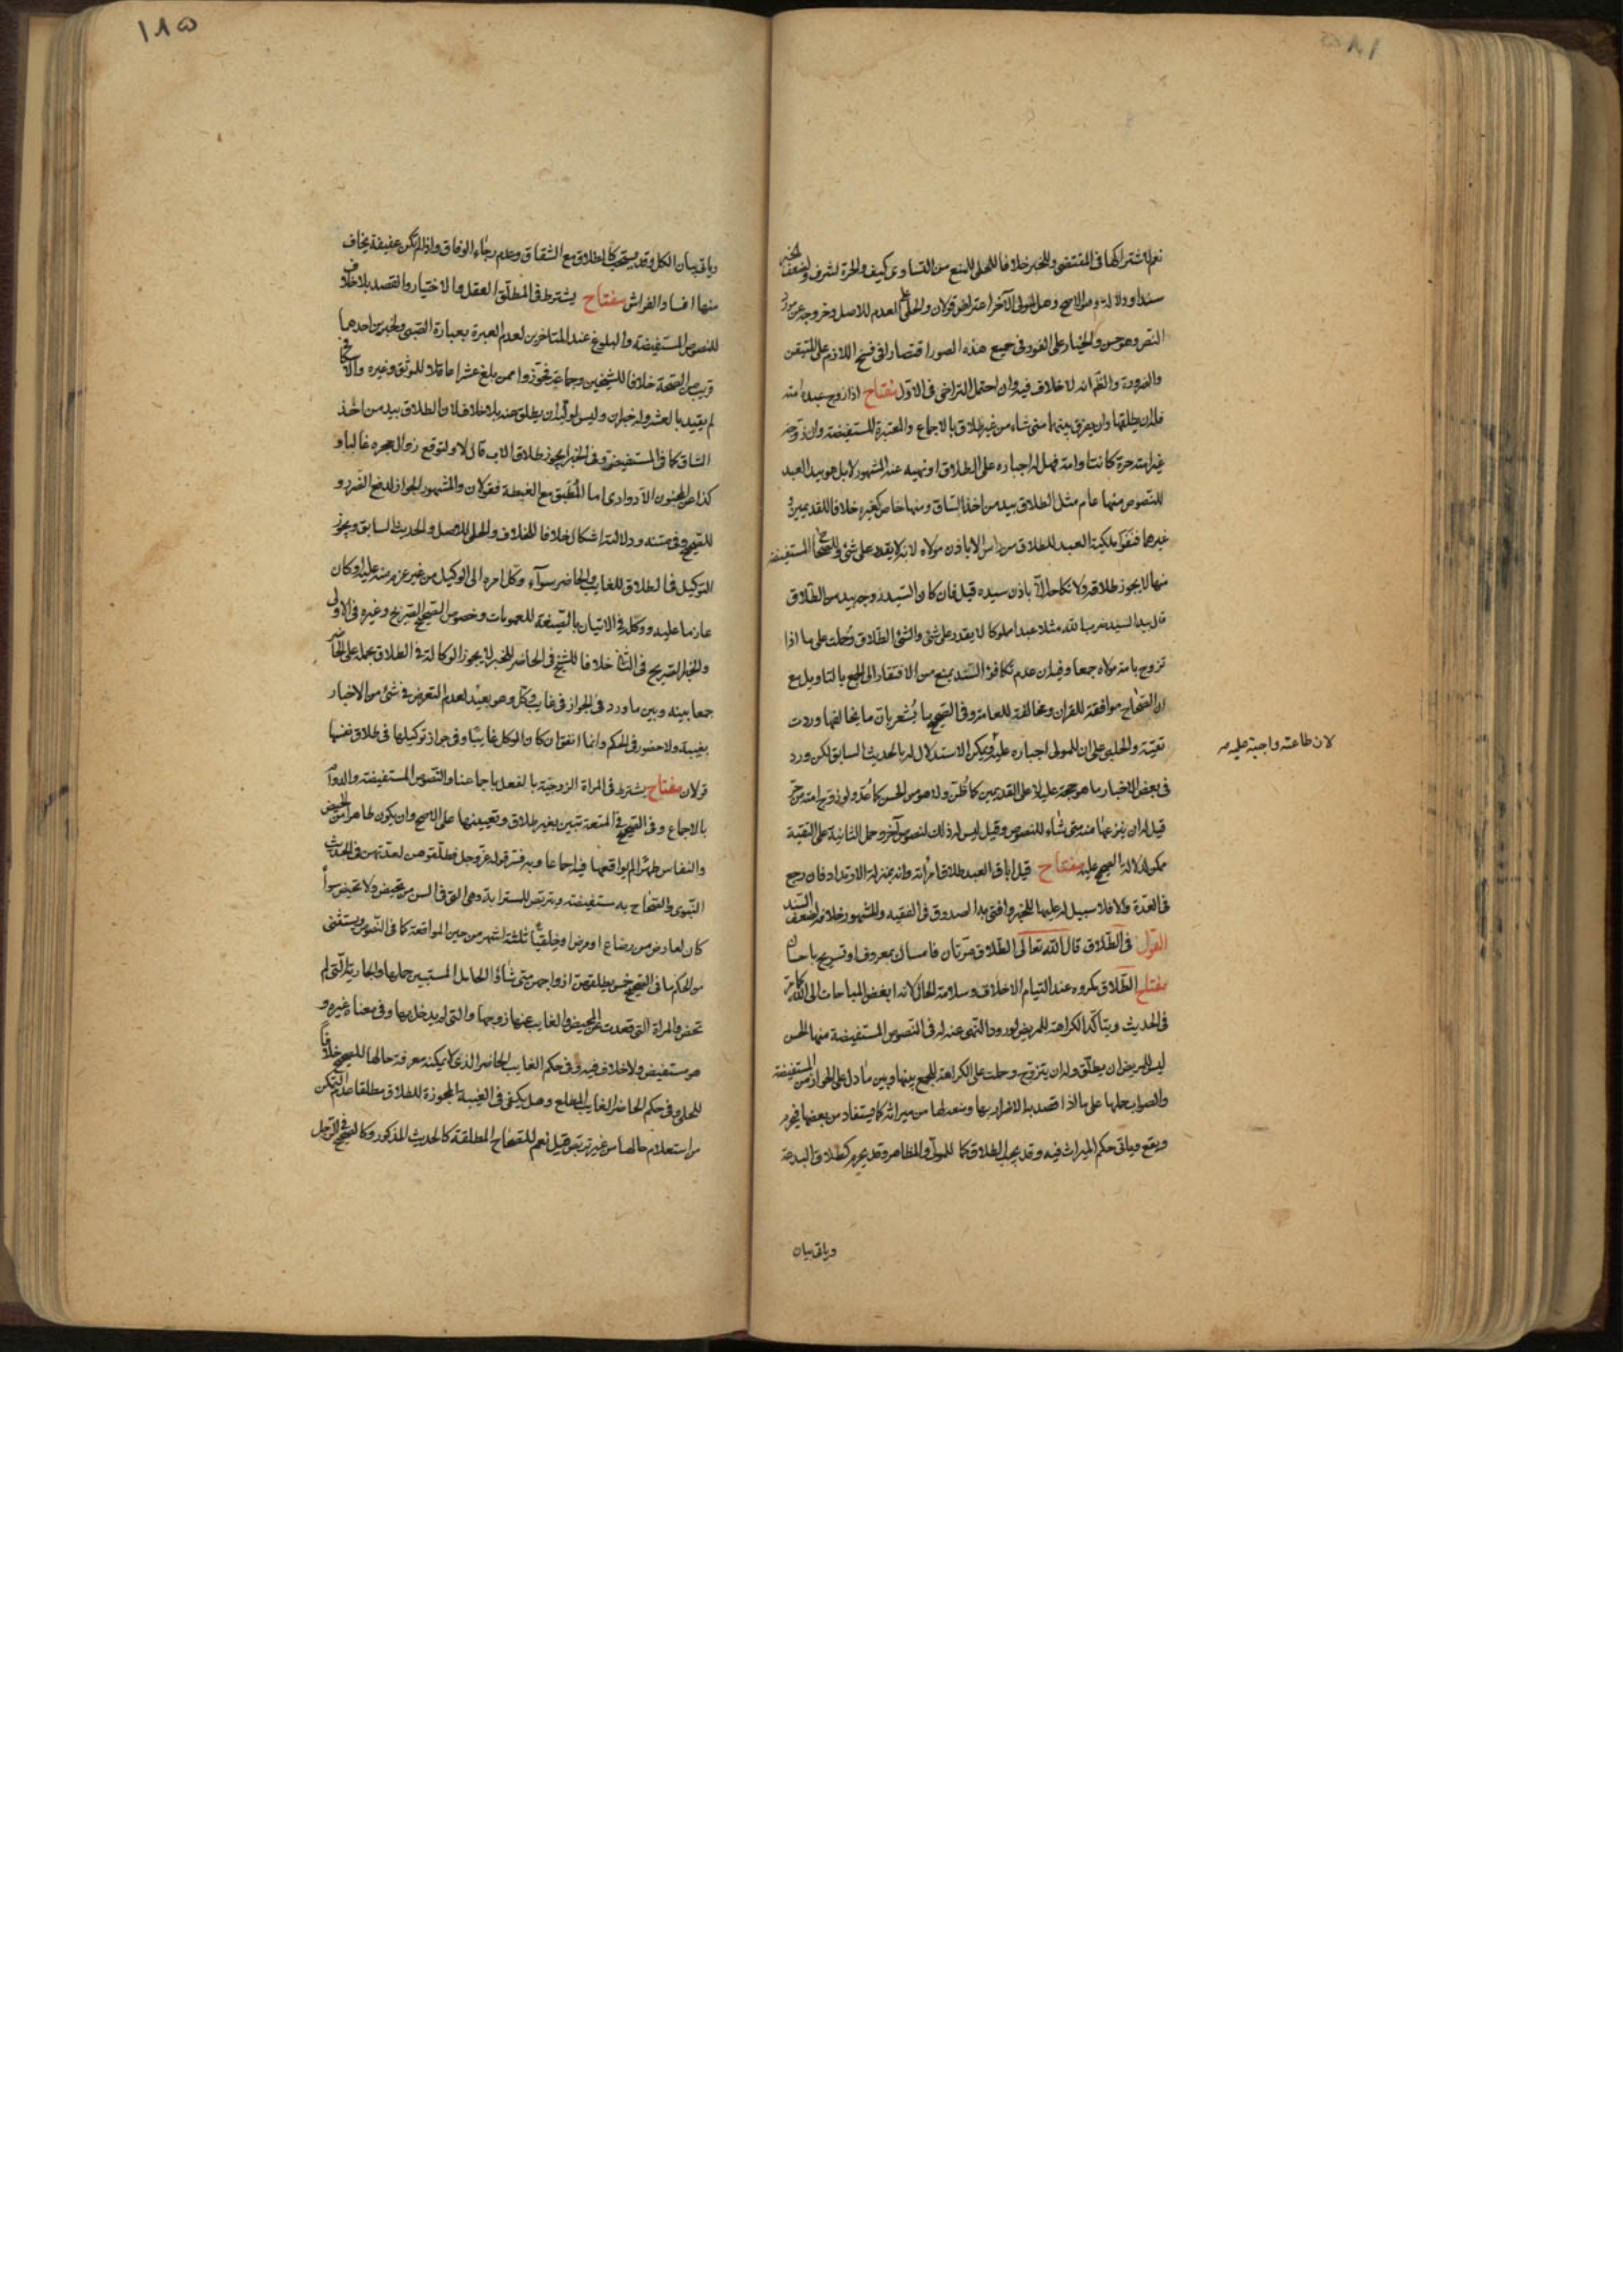 نعم لاشتراكهما فى المقتضى وللخبر خلافا للحلى للمنع من التساوى كيف والحرة اشرف ولضعف الخبر
سندا ودلالة وهو الاصح وهل لمولى الآخر اعتراض قولان والحلى على العدم للاصل وخروجه عن مورد
النص وهو حسن والخيار على الفور فى جميع هذه الصور اقتصارا فى فسخ اللازم على المتيقن
والضرورة والظّم انه لا خلاف فيه وان احتمل التراخى فى الاوّل مفتاح اذا زوج عبده امته
فله ان يطلقها وان يفرق بينهما متى شاء من غير طلاق بالاجماع والمعتبرة المستفيضة وان زوّجه
غير امته حرة كانت او امة فهل له اجباره على الطلاق او نهيه عنه المشهور لا بل هو بيد العبد
للنصوص منها عام مثل الطلاق بيد من اخذ بالساق ومنها خاص كغيره خلافا للقديمين و
غيرهما فنفوا ملكية العبد للطلاق من راس الا باذن مولاه لانه لا يقدر على شئ وللصحاح المستفيضة
منها لا يجوز طلاقه ولا نكاحه الّا باذن سيده قيل فان كان السّيد زوجه بيد من الطّلاق
قال بيد السيد ضرب اللّه مثلا عبدا مملوكا لا يقدر على شئ والشئ الطّلاق وحُملت على ما اذا
تزوج بامة مولاه جمعا وفيه ان عدم تكافؤ السّند يمنع من الافتقار الى الجمع بالتاويل مع
ان الصّحاح موافقة للقران ومخالفة للعامة وفى الصّحيح ما يُشعر بان ما يخالفها وردت
تقيّة والحلبى على ان للمولى اجباره عليه ويمكن الاستدلال له بالحديث السابق لكن ورد
لان طاعته واجبة عليه
فى بعض الاخبار ما هو حجة عليه لا على القديمين كما ظُنّ وله هو من الحسن كما عُدّ ولو زوّج امته من حرّ
قيل له ان ينزعها منه متى شاء للنصوص وقيل ليس له ذلك لنصوص آخر وحمل الثانية على التقية
ممكن لدلالة الصحيح عليه مفتاح قيل اباق العبد طلاق امرأته وانه بمنزلة الارتداد فان رجع
فى العدّة والا فلا سبيل له عليها للخبر وافتى به الصدوق فى الفقيه والمشهور خلافه لضعف السّند
القول فى الطّلاق قال اللّه تعالى الطّلاق مرّتان فامساك بمعروف او تسريح باحسان
مفتاح الطّلاق مكروه عند التيام الاخلاق وسلامة الحال لانه ابغض المباحات الى اللّه كما مرّ
فى الحديث ويتاكّد الكراهة للمريض لورود النّهى عنه له فى النّصوص المستفيضة منها الحسن
ليس للمريض ان يطلّق وله ان يتزوّج وحملت على الكراهة للجمع بينها وبين ما دلّ على الجواز من المستفيضة
والصواب حملها على ما اذا قصد به الاضرار بها ومنعها من ميراثه كما يستفاد من بعضها فيحرم
ويقع وياتى حكم الميراث فيه وقد يجب الطلاق كما للمولّى والمظاهر وقد يحرم كطلاق البدعة
وياتى بيان
١٨٥
وياتى بيان الكل وقد يستحب كالطلاق مع الشقاق وعدم رجاء الوفاق واذا لم تكن عفيفة يخاف
منها افساد الفراش مفتاح يشترط فى المطلّق العقل والاختيار والقصد بلا خلاف
للنصوص المستفيضة والبلوغ عند المتاخرين لعدم العبرة بعبارة الصّبى ولخبرين احدهما
قريب من الصّحة خلافا للشيخين وجماعة فجوّزوا ممن بلغ عشرا عاقلا للموثق وغيره والاسكافى
لم يقيد بالعشر وله خبران وليس لوليّه ان يطلق عنه بلا خلاف لان الطلاق بيد من اخذ
السّاق كما فى المستفيضة وفى الخبر ايجوز طلاق الاب قال لا ولتوقع زوال حجره غالبا و
كذا عن المجنون الادوارى اما المُطبق مع الغبطة فقولان والمشهور الجواز لدفع الضّرر و
للصّحيح وفى متنه ودلالته اشكال خلافا للخلاف والحلى للاصل والحديث السابق ويجوز
التوكيل فى الطلاق للغايب والحاضر سوآء وكّل امره الى الوكيل من غير عزم منه عليه او كان
عازما عليه ووكله فى الاتيان بالصّيغة للعمومات وخصوص الصّحيح الصّريح وغيره فى الاولى
والخبر الصّريح فى الثانى خلافا للشيخ فى الحاضر للخبر لا يجوز الوكالة فى الطلاق بحمله على الحاضر
جمعا بينه وبين ما ورد فى الجواز فى غايب وكّل وهو بعيد لعدم التعرض فى شئ من الاخبار
بغيبة ولا حضور فى الحكم وانما اتفق ان كان الموكل غايبًا وفى جواز توكيلها فى طلاق نفسها
قولان مفتاح يشترط فى المراة الزوجيّة بالفعل باجماعنا والنّصوص المستفيضة والدوام
بالاجماع وفى الصّحيح فى المتعة تبين بغير طلاق وتعيينها على الاصح وان يكون طاهرا من الحيض
والنفاس طهرًا لم يواقعها فيه اجماعا وبه فسّر قوله عزّ وجل فطلّقوهن لعدّتهن فى الحديث
النّبوى والصّحاح به مستفيضة ويتربّص للمسترابة وهى التى فى السن من تحيض ولا تحيض سوآء
كان لعارض من رضاع او مرض او خلقيًّا ثلثة اشهر من حين المواقعة كما فى النّصوص ويستثنى
من الحكم ما فى الصّحيح خمس يطلقهنّ ازواجهن متى شاؤا الحامل المستبين حملها والجارية الّتى لم
تحض والمراة التى قعدت عن المحيض والغايب عنها زوجها والتى لم يدخل بها وفى معناه غيره و
هو مستفيض ولا خلاف فيه وفى حكم الغايب الحاضر الذى لا يمكنه معرفة حالها للصحيح خلافًا
للحلى وفى حكم الحاضر الغايب المطلع وهل يكفى فى الغيبة المجوزة للطلاق مطلقا عدم التّمكن
من استعلام حالها من غير تربّص قيل نعم للصّحاح المطلقة كالحديث المذكور وكالصّحيح فى الرّجل